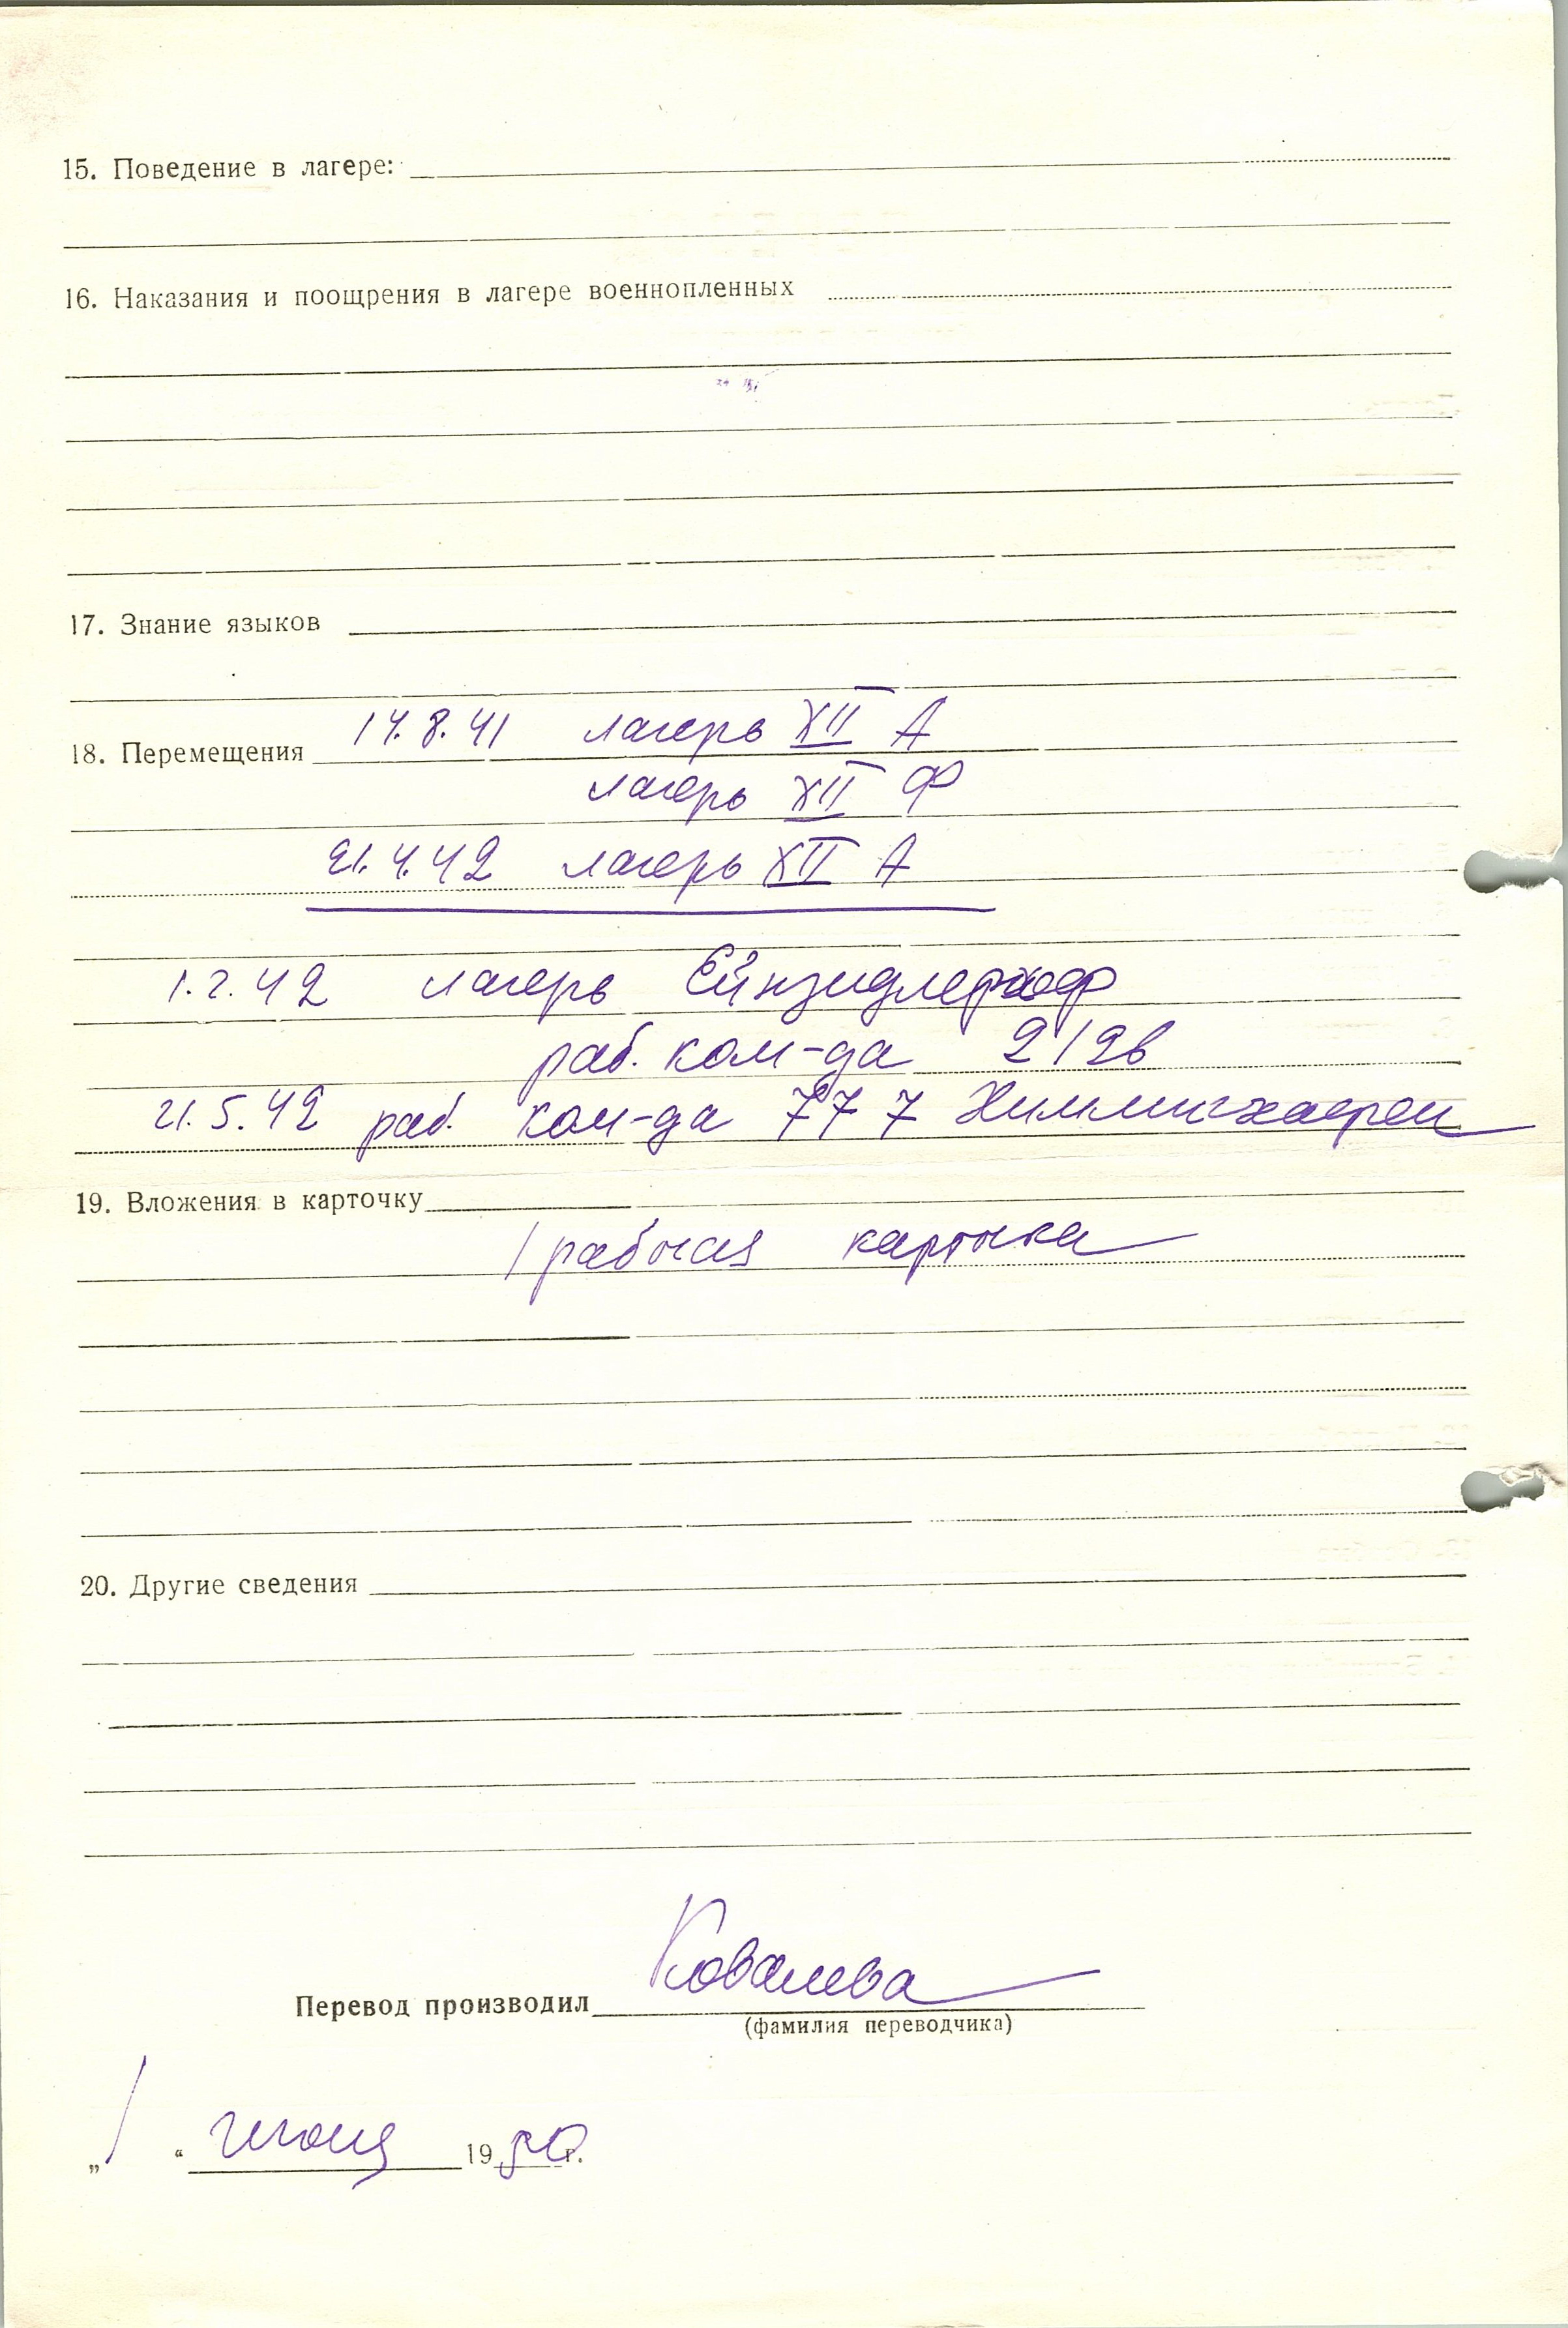 15. Поведение в лагере:
16. Наказания и поощрения в лагере военнопленных
17. Знание языков
18. Перемещения 14.8.41 лагерь XII А
лагерь XII Ф
21.4.42 лагерь XII А
1.2.42 лагерь Ейнзидлерхоф
раб. ком-да 2/2в
21.5.42 раб. ком-да 777
19. Вложения в карточку
1 рабочая карточка
20. Другие сведения
Перевод производил Ковалева
(фамилия переводчика)
„1“ июня 1950 г.